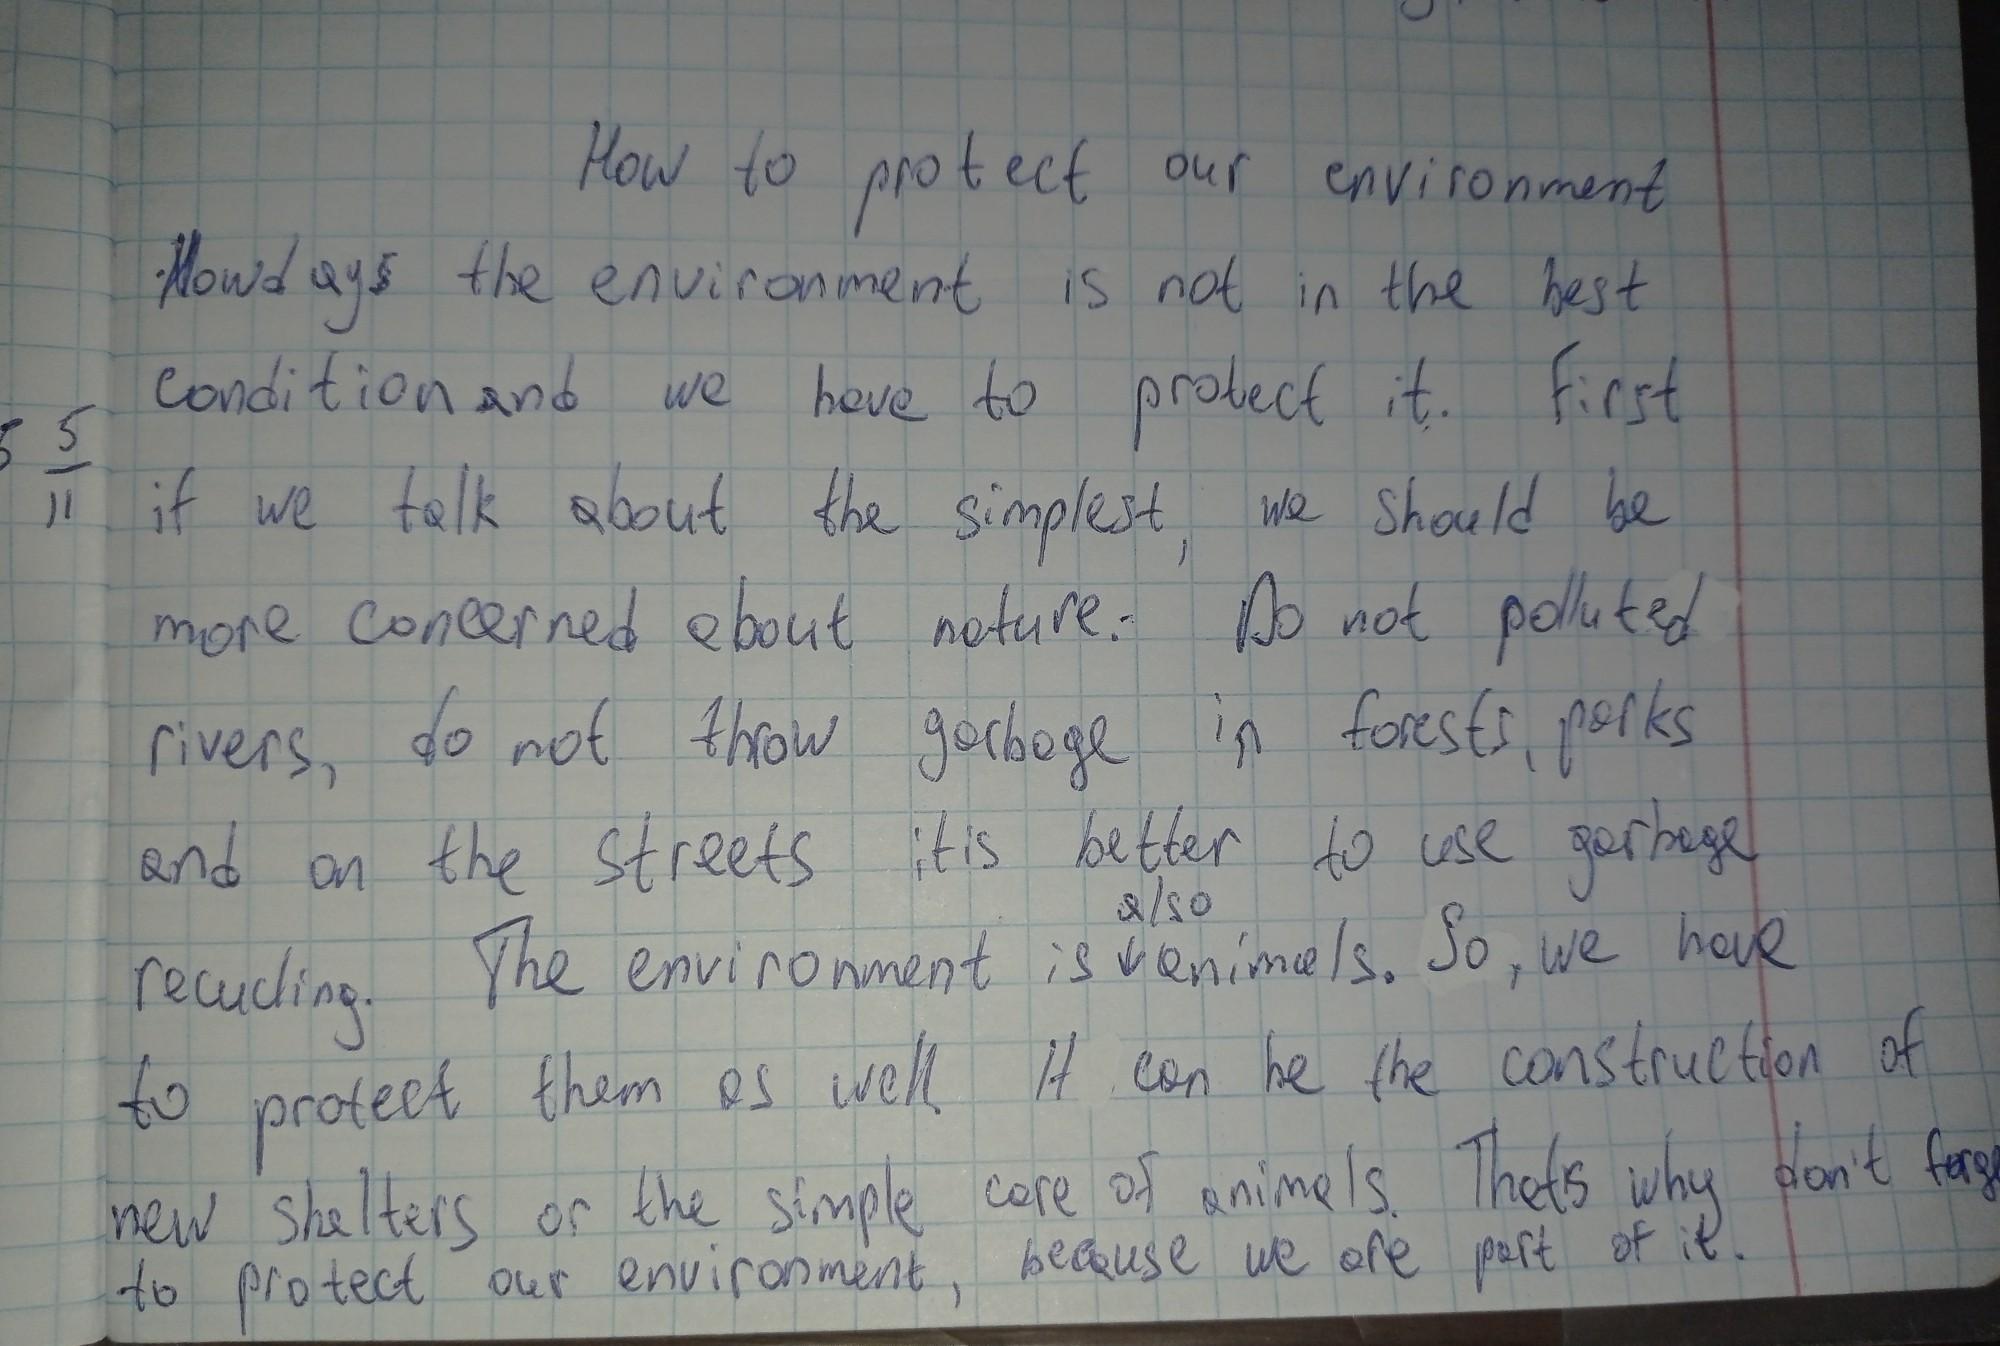 How to protect our environment
Nowdays the environment is not in the best
condition and we have to protect it. First
5 5/11
if we talk about the simplest, we should be
more concerned about nature. Do not polluted
rivers, do not throw garbage in forests, parks
and on the streets it is better to use garbage
also
recucling. The environment is animals. So, we have
to protect them as well. It can be the construction of
new shelters or the simple care of animals. That's why don't forge
to protect our environment, because we are part of it.